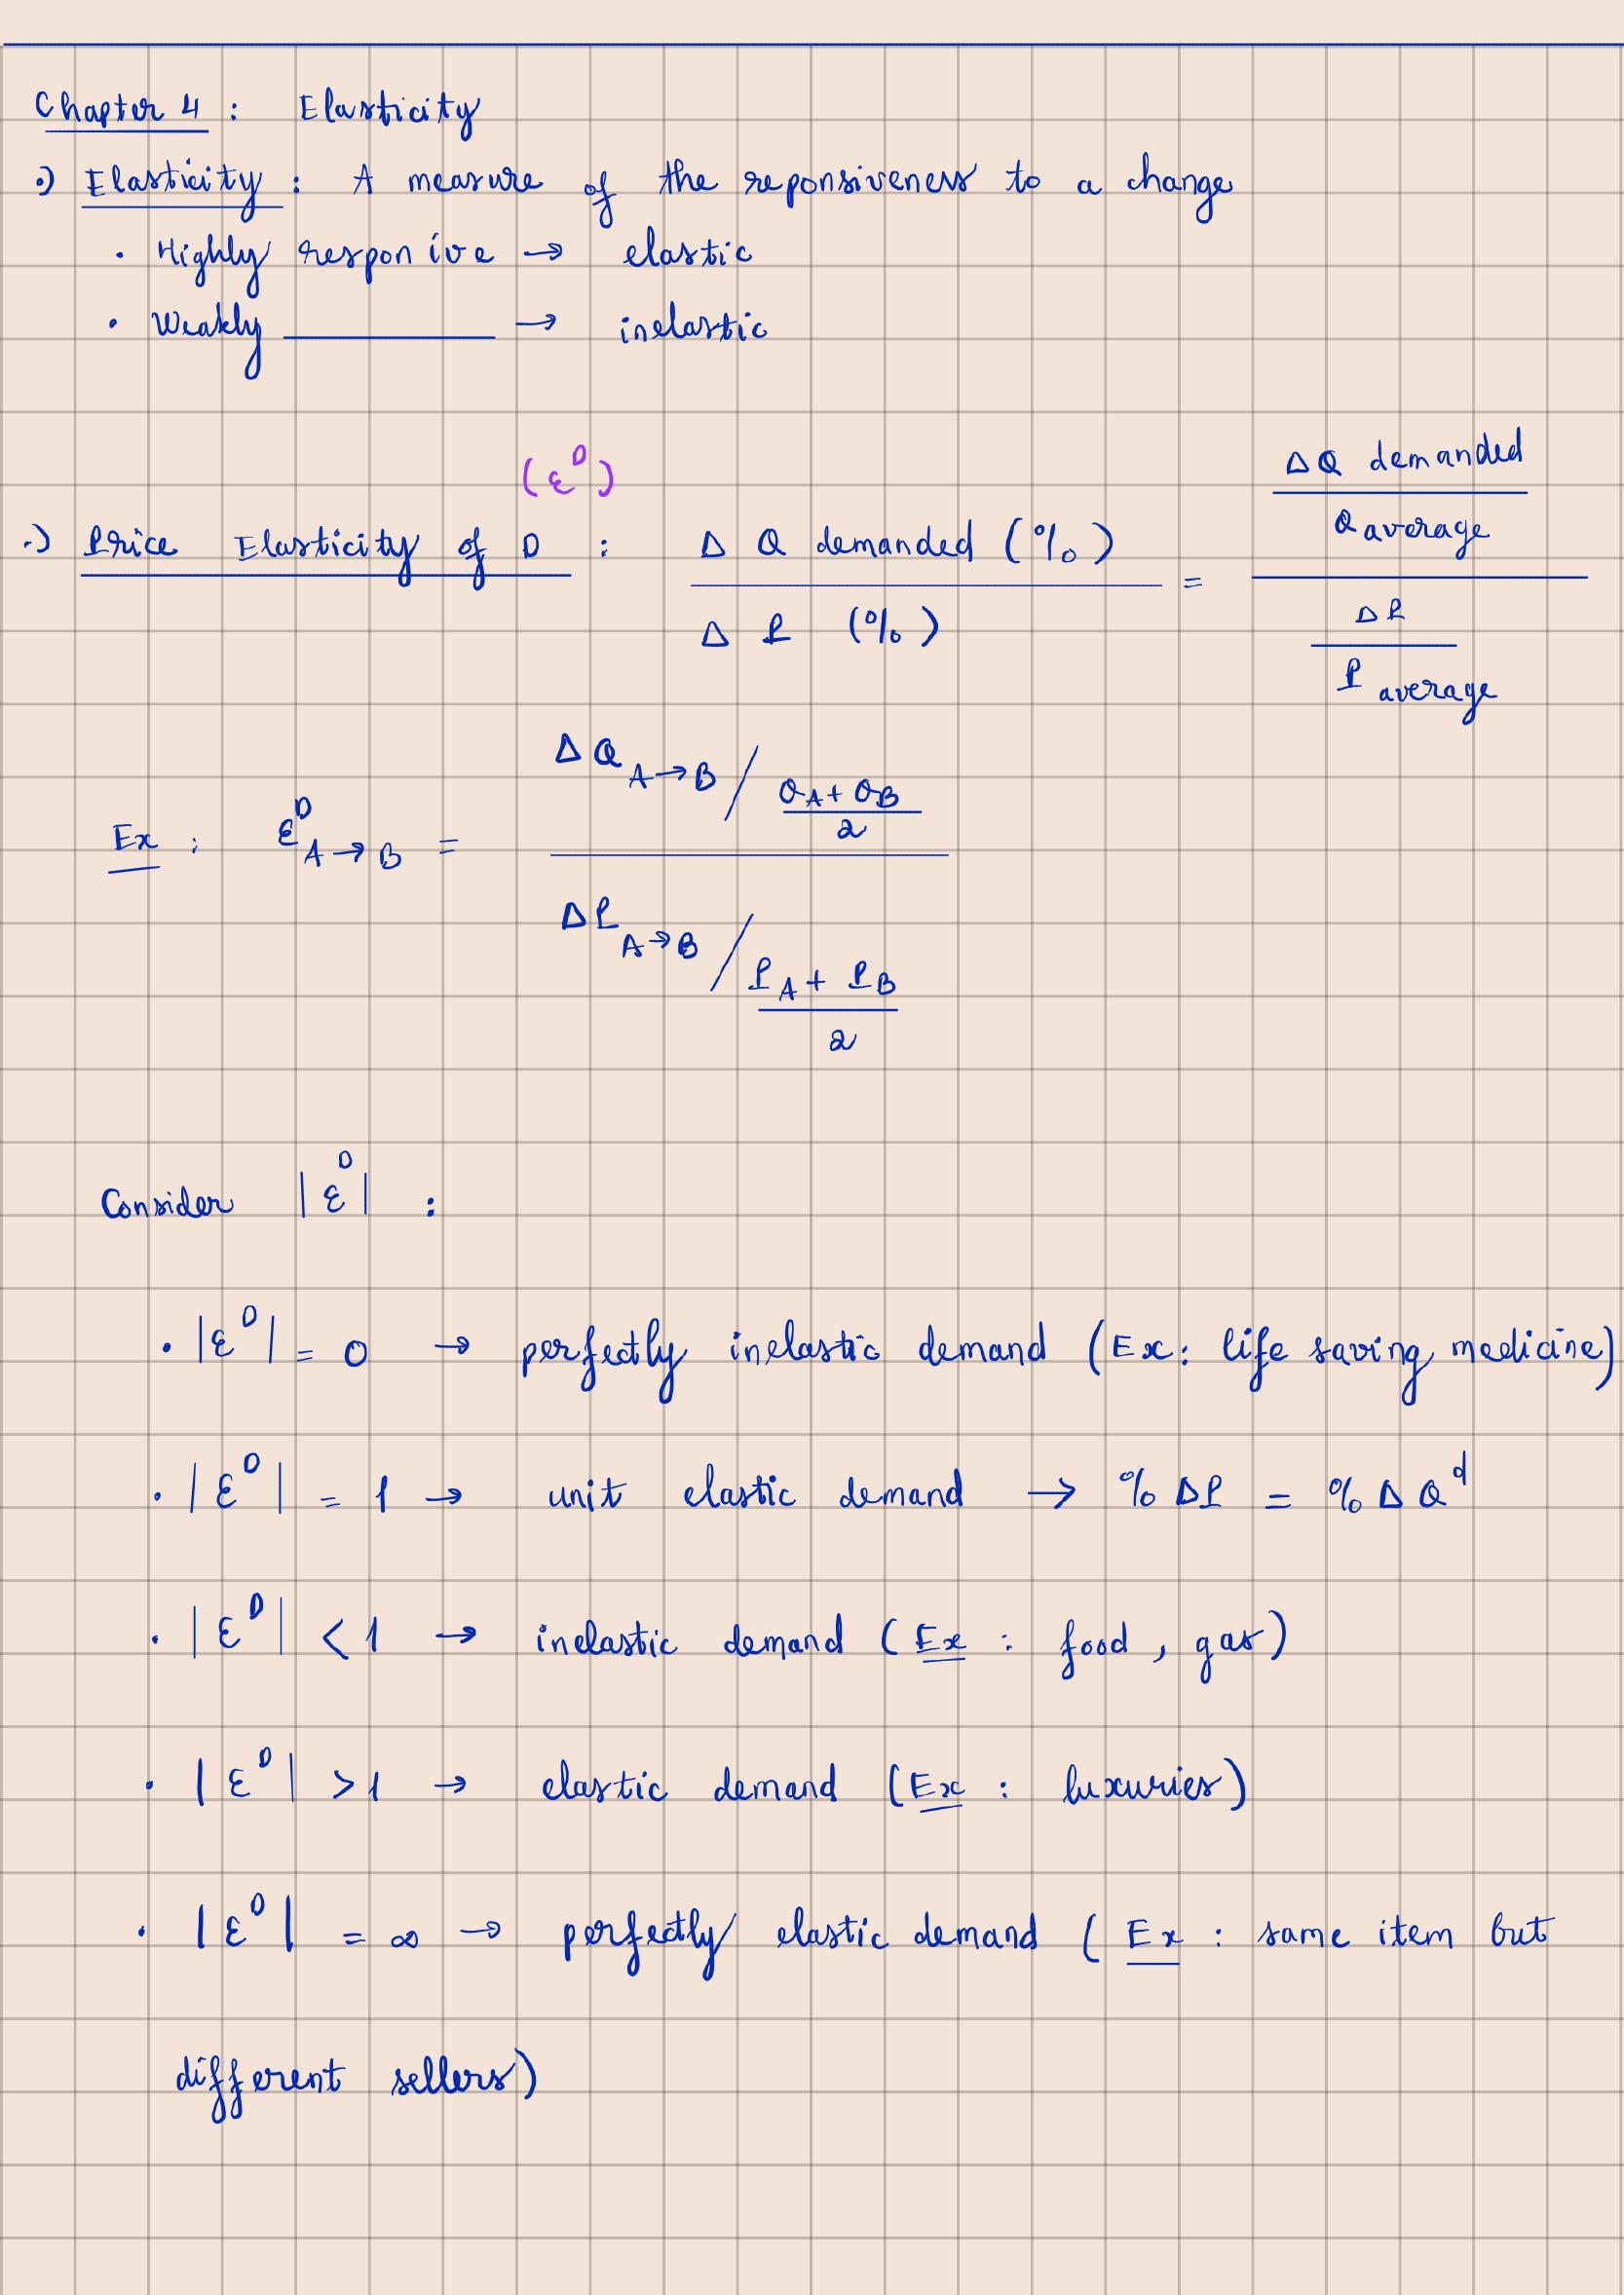 Chapter 4 : Elasticity
•) Elasticity : A measure of the reponsiveness to a change
• Highly responive → elastic
• Weakly ________ → inelastic
(ε^D)
•) Price Elasticity of D : Δ Q demanded (%) / Δ P (%) = (ΔQ demanded / Q average) / (ΔP / P average)
Ex : ε^D A→B = (ΔQ A→B / (Q_A + Q_B)/2) / (ΔP A→B / (P_A + P_B)/2)
Consider |ε^D| :
• |ε^D| = 0 → perfectly inelastic demand (Ex: life saving medicine)
• |ε^D| = 1 → unit elastic demand → % ΔP = % ΔQ^d
• |ε^D| < 1 → inelastic demand (Ex : food, gas)
• |ε^D| > 1 → elastic demand (Ex : luxuries)
• |ε^D| = ∞ → perfectly elastic demand (Ex : same item but
different sellers)